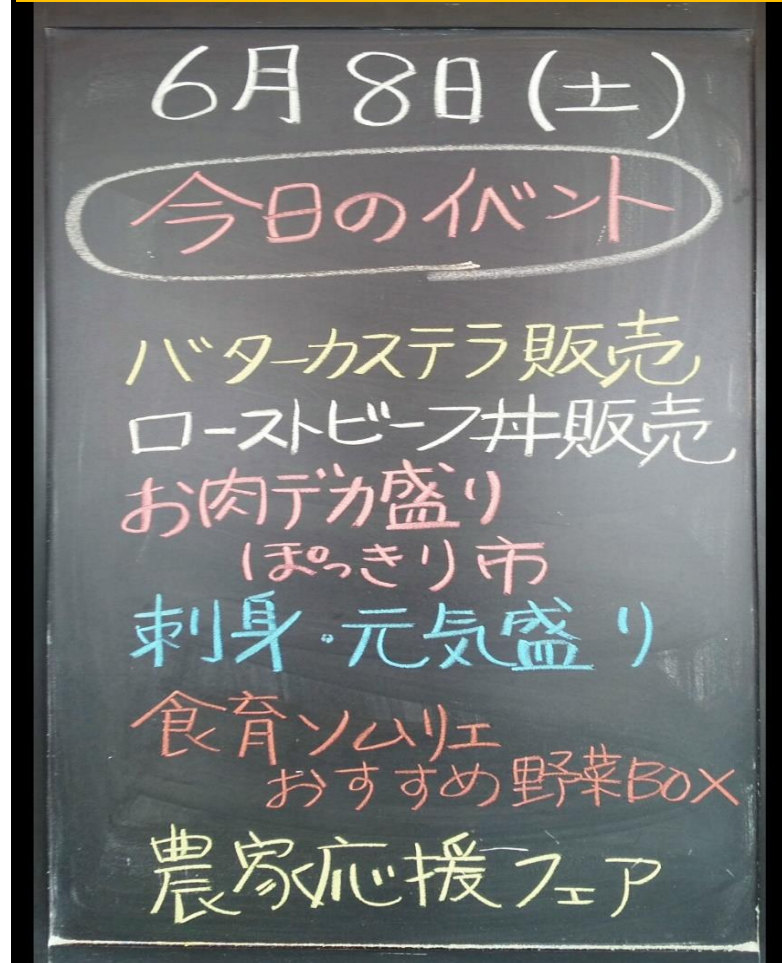 6月8日(土)
今日のイベント
バターカステラ販売
ローストビーフ丼販売
お肉デカ盛り
ぽっきり市
刺身・元気盛り
食育ソムリエ
おすすめ野菜BOX
農家応援フェア